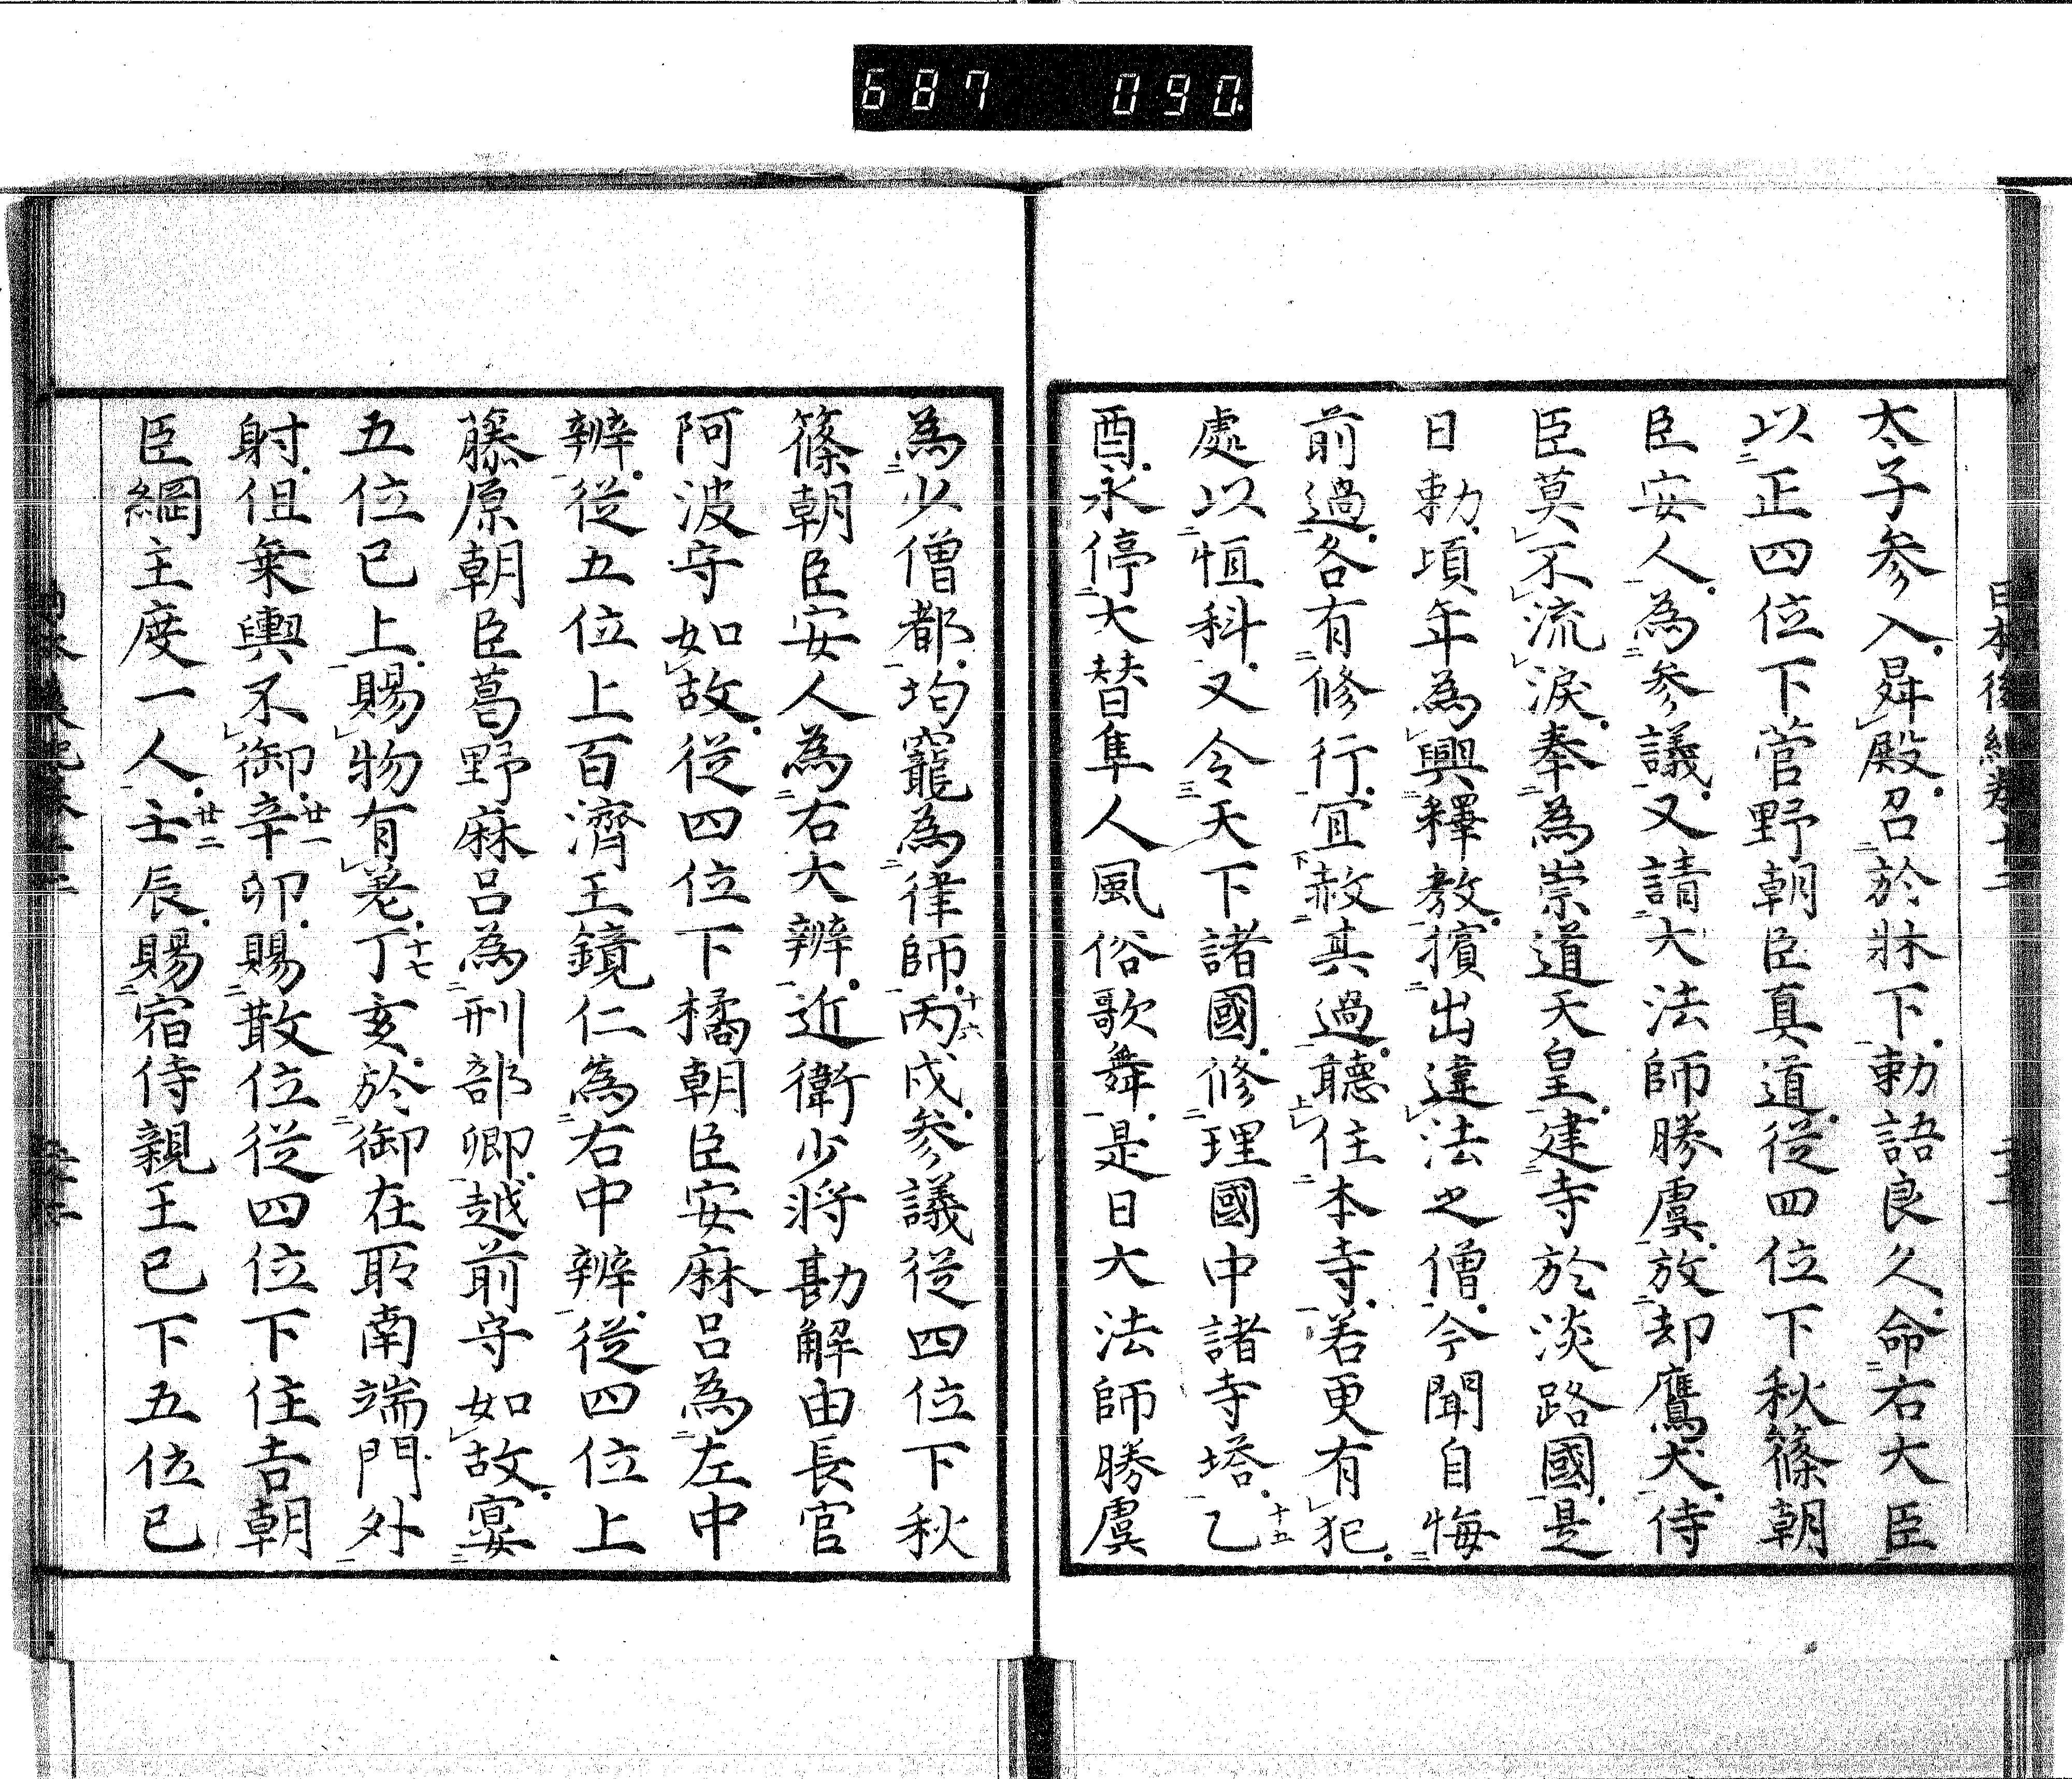 687 090
日本後紀卷十二
太子参入昇殿召於牀下勅語良久命右大臣
以正四位下菅野朝臣真道從四位下秋篠朝
臣安人為参議又請大法師勝虞放却鷹犬侍
臣莫不流涙奉為崇道天皇建寺於淡路國是
日勅頃年為興釋教擯出違法之僧今聞自悔
前過各有修行宜赦其過聽住本寺若更有犯
處以恒科又令天下諸國修理國中諸寺塔乙十五
酉永停大替隼人風俗歌舞是日大法師勝虞
為少僧都均寵為律師丙十六戌参議從四位下秋
篠朝臣安人為右大辨近衛少將勘解由長官
阿波守如故從四位下橘朝臣安麻呂為左中
辨從五位上百濟王鏡仁為右中辨從四位上
藤原朝臣葛野麻呂為刑部卿越前守如故宴
五位已上賜物有差丁十七亥於御在所南端門外
射但乗輿不御辛廿一卯賜散位從四位下住吉朝
臣綱主度一人壬廿二辰賜宿侍親王已下五位已